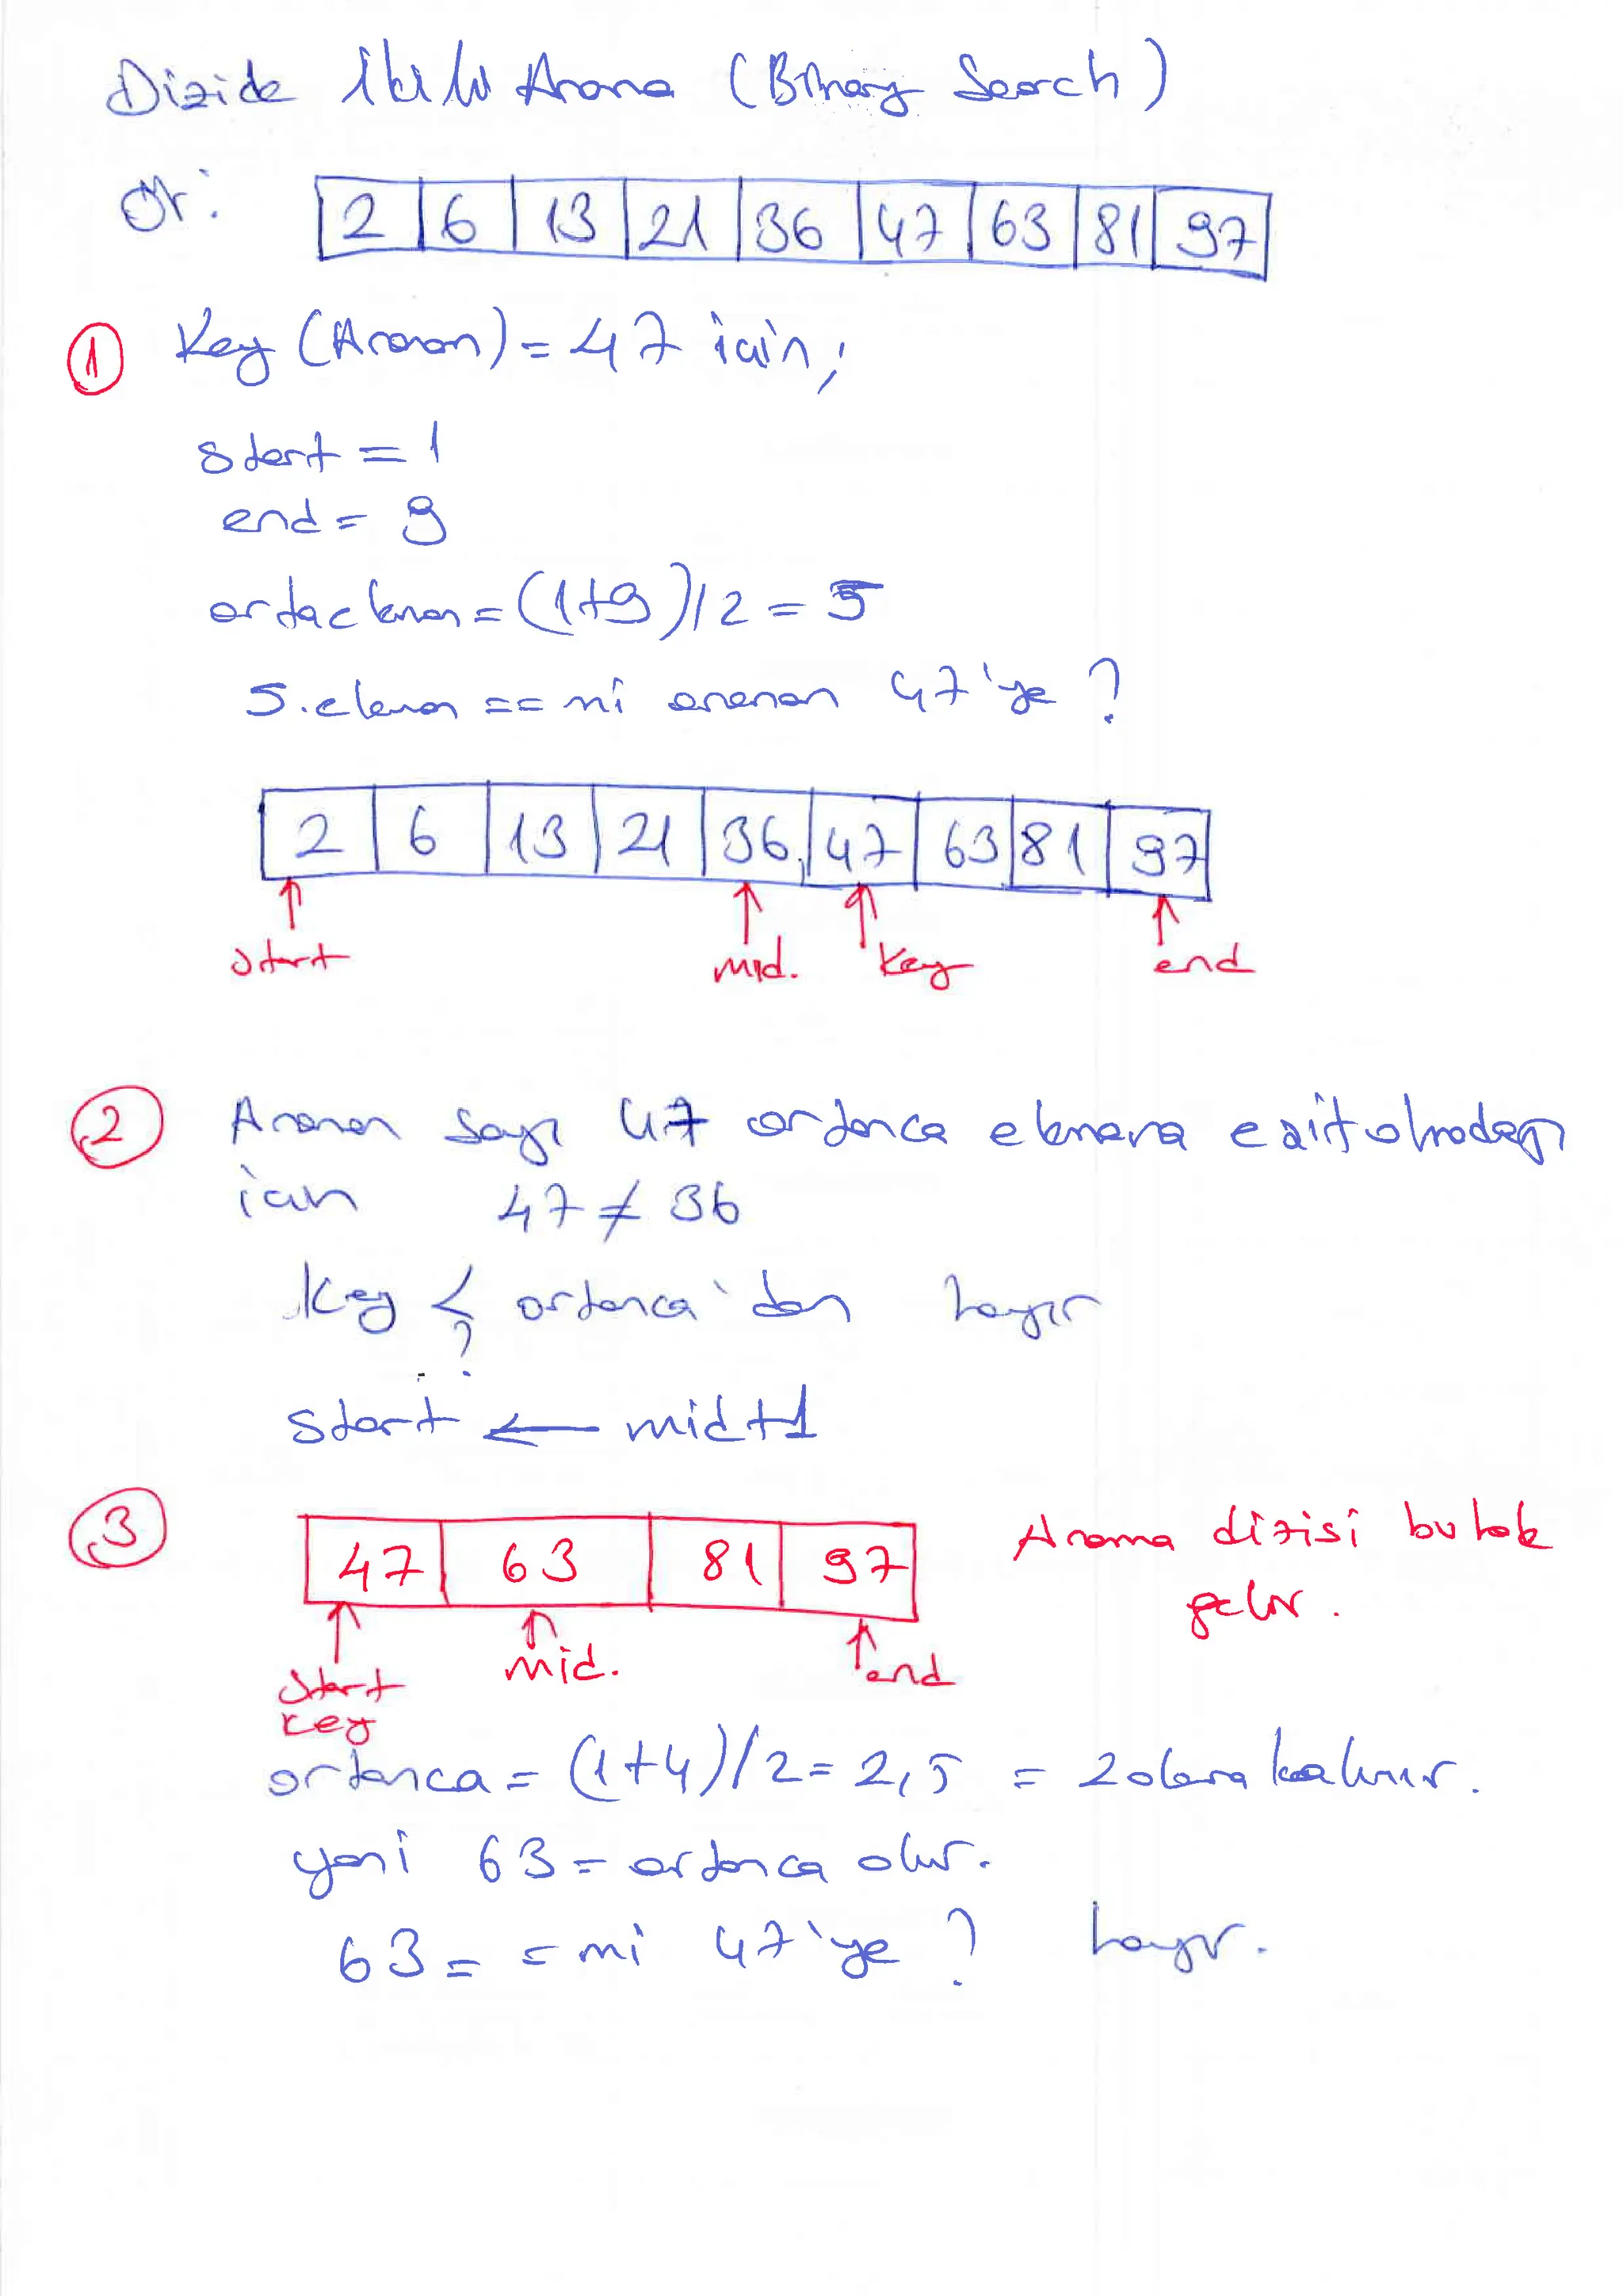 Dizide İkili Arama (Binary Search)
Ör: 2 6 13 21 36 47 63 81 97
1 Key (Aranan) = 47 için;
start = 1
end = 9
ortadaki eleman = (1+9)/2 = 5
5. eleman == mi aranan 47'ye ?
2 6 13 21 36 47 63 81 97
start mid. key end
2 Aranan sayı 47 ortanca elemana eşit olmadığı
için 47 ≠ 36
key < ortanca'dan hayır
?
start ← mid+1
3 47 63 81 97 Arama dizisi bu hale
gelir.
start mid. end
key
ortanca = (1+4)/2 = 2,5 = 2 olarak alınır.
yani 63 = ortanca olur.
63 = = mi 47'ye ? hayır.